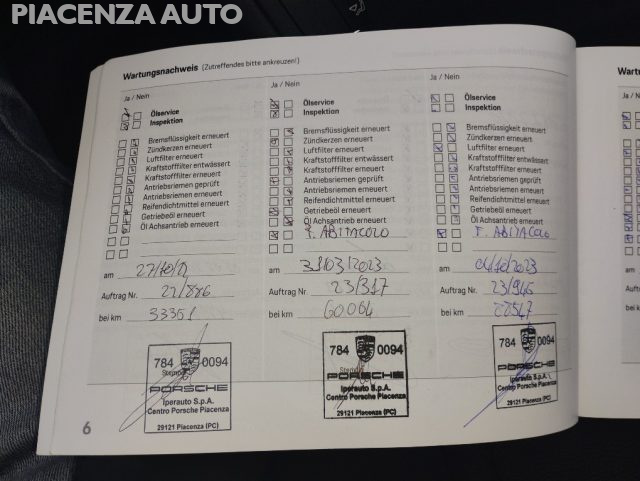 PIACENZA AUTO
Wartungsnachweis (Zutreffendes bitte ankreuzen!)
Ja / Nein
Ölservice
Inspektion
Bremsflüssigkeit erneuert
Zündkerzen erneuert
Luftfilter erneuert
Kraftstofffilter entwässert
Kraftstofffilter erneuert
Antriebsriemen geprüft
Antriebsriemen erneuert
Reifendichtmittel erneuert
Getriebeöl erneuert
Öl Achsantrieb erneuert
am
Auftrag Nr. 22/886
bei km 33351
784 0094
PORSCHE
Iperauto S.p.A.
Centro Porsche Piacenza
29121 Piacenza (PC)
Ja / Nein
Ölservice
Inspektion
Bremsflüssigkeit erneuert
Zündkerzen erneuert
Luftfilter erneuert
Kraftstofffilter entwässert
Kraftstofffilter erneuert
Antriebsriemen geprüft
Antriebsriemen erneuert
Reifendichtmittel erneuert
Getriebeöl erneuert
Öl Achsantrieb erneuert
F. ABITACOLO
am 31/03/2023
Auftrag Nr. 23/317
bei km 60064
784 0094
PORSCHE
Iperauto S.p.A.
Centro Porsche Piacenza
29121 Piacenza (PC)
Ja / Nein
Ölservice
Inspektion
Bremsflüssigkeit erneuert
Zündkerzen erneuert
Luftfilter erneuert
Kraftstofffilter entwässert
Kraftstofffilter erneuert
Antriebsriemen geprüft
Antriebsriemen erneuert
Reifendichtmittel erneuert
Getriebeöl erneuert
Öl Achsantrieb erneuert
F. ABITACOLO
am 04/10/2023
Auftrag Nr. 23/946
bei km 88547
784 0094
PORSCHE
Iperauto S.p.A.
Centro Porsche Piacenza
29121 Piacenza (PC)
6
Ja / N